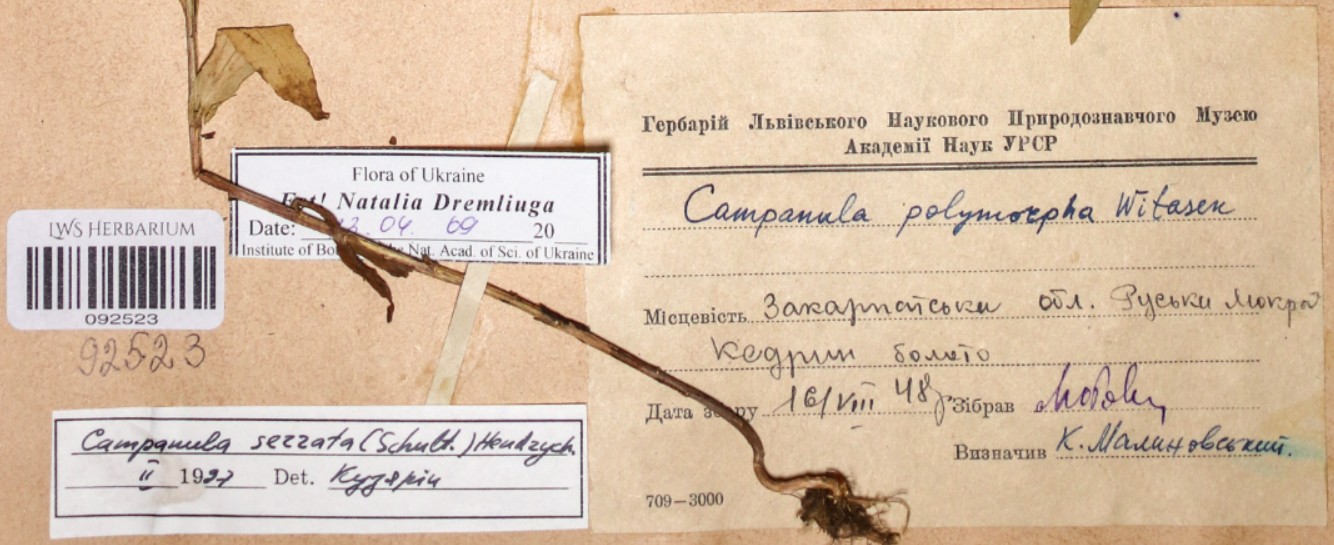 Гербарій Львівського Наукового Природознавчого Музею
Академії Наук УРСР
Campanula polymorpha Witasek
Місцевість Закарпатська обл. Руська Мокра
Кедрин болото
Дата збору 16/VIII 48р Зібрав
Визначив К. Малиновський.
709—3000
Flora of Ukraine
Natalia Dremliuga
Date: 04. 69 20
Institute of Nat. Acad. of Sci. of Ukraine
LWS HERBARIUM
092523
92523
Campanula serrata (Schult.) Hendrych.
II 1997 Det. Кузярін